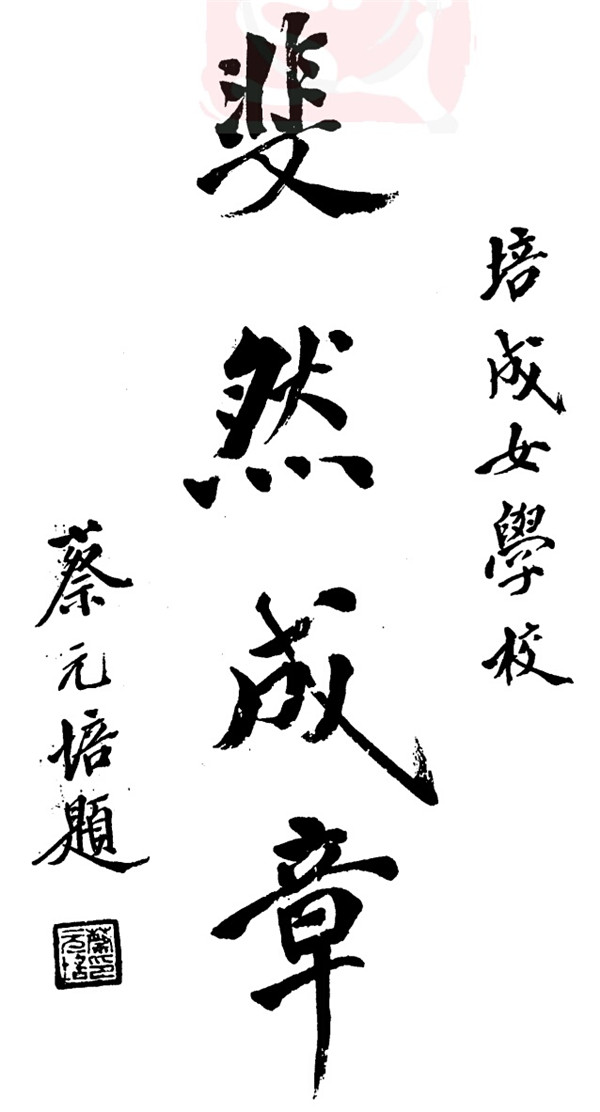 培成女學校
斐然成章
蔡元培題
蔡元培印